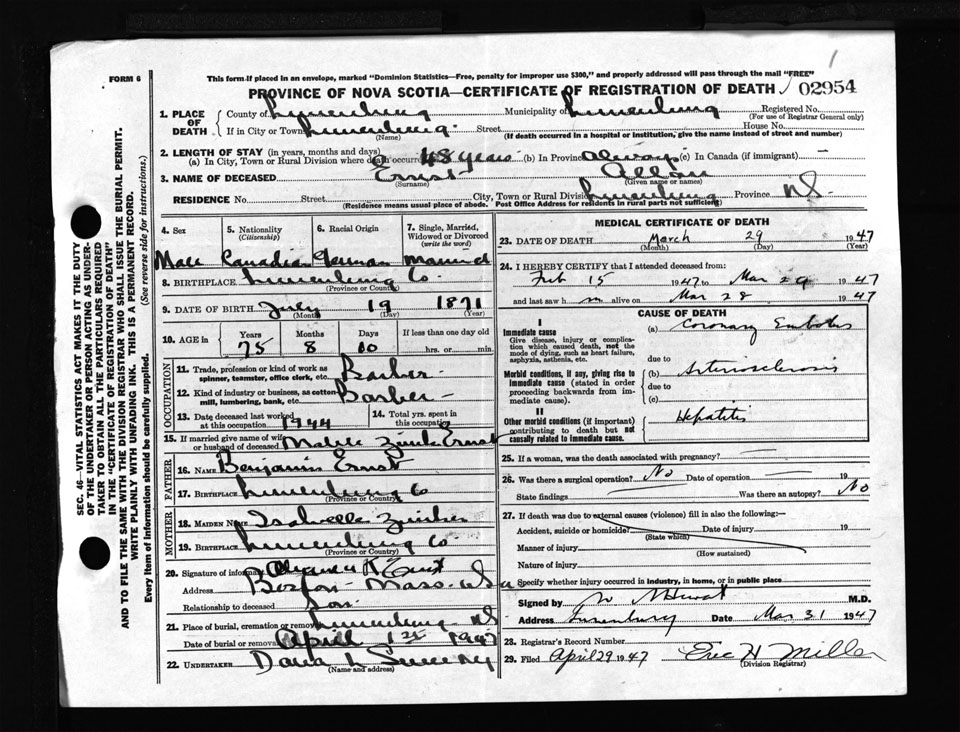 1
FORM 6
This form if placed in an envelope, marked "Dominion Statistics—Free, penalty for improper use $300," and properly addressed will pass through the mail "FREE"
PROVINCE OF NOVA SCOTIA—CERTIFICATE OF REGISTRATION OF DEATH 02954
1. PLACE OF DEATH
County of Lunenburg Municipality of Lunenburg Registered No.
(For use of Registrar General only)
If in City or Town Lunenburg Street House No.
(Name) (If death occurred in a hospital or institution, give the name instead of street and number)
2. LENGTH OF STAY (in years, months and days)
(a) In City, Town or Rural Division where death occurred 48 years (b) In Province always (c) In Canada (if immigrant) —
3. NAME OF DECEASED Ernst Allan
(Surname) (Given name or names)
RESIDENCE No. Street City, Town or Rural Division Lunenburg Province NS
(Residence means usual place of abode. Post Office Address for residents in rural parts not sufficient)
4. Sex 5. Nationality (Citizenship) 6. Racial Origin 7. Single, Married, Widowed or Divorced (write the word)
Male Canadian German married
8. BIRTHPLACE Lunenburg Co.
(Province or Country)
9. DATE OF BIRTH July 19 1871
(Month) (Day) (Year)
10. AGE in Years Months Days If less than one day old
75 8 10 hrs. or min.
OCCUPATION
11. Trade, profession or kind of work as spinner, teamster, office clerk, etc. Barber
12. Kind of industry or business, as cotton mill, lumbering, bank, etc. Barber
13. Date deceased last worked at this occupation 1944 14. Total yrs. spent in this occupation
15. If married give name of wife or husband of deceased Zinck Ernst
FATHER
16. NAME Benjamin Ernst
17. BIRTHPLACE Lunenburg Co
(Province or Country)
MOTHER
18. MAIDEN NAME Isabelle Zinck
19. BIRTHPLACE Lunenburg Co.
(Province or Country)
20. Signature of informant Ernst
Address Boston Mass. U.S.A
Relationship to deceased Son
21. Place of burial, cremation or removal Lunenburg NS
Date of burial or removal April 1st 1947
22. UNDERTAKER Sweeny
(Name and address)
MEDICAL CERTIFICATE OF DEATH
23. DATE OF DEATH March 29 1947
(Month) (Day) (Year)
24. I HEREBY CERTIFY that I attended deceased from:
Feb 15 1947 to Mar 29 1947
and last saw h m alive on Mar 28 1947
CAUSE OF DEATH
I
Immediate cause
Give disease, injury or complication which caused death, not the mode of dying, such as heart failure, asphyxia, asthenia, etc.
(a) Coronary Embolus
due to
Morbid conditions, if any, giving rise to immediate cause (stated in order proceeding backwards from immediate cause).
(b) Arteriosclerosis
due to
(c)
II
Other morbid conditions (if important) contributing to death but not causally related to immediate cause.
Hepatitis
25. If a woman, was the death associated with pregnancy?
26. Was there a surgical operation? No Date of operation 19
State findings Was there an autopsy? No
27. If death was due to external causes (violence) fill in also the following:—
Accident, suicide or homicide? Date of injury 19
(State which)
Manner of injury
(How sustained)
Nature of injury
Specify whether injury occurred in industry, in home, or in public place
Signed by M.D.
Address Lunenburg Date Mar 31 1947
28. Registrar's Record Number
29. Filed April 29 1947 Eric H Miller
(Division Registrar)
SEC. 46—VITAL STATISTICS ACT MAKES IT THE DUTY
OF THE UNDERTAKER OR PERSON ACTING AS UNDER-
TAKER TO OBTAIN ALL THE PARTICULARS REQUIRED
IN THE "CERTIFICATE OF REGISTRATION OF DEATH"
AND TO FILE THE SAME WITH THE DIVISION REGISTRAR WHO SHALL ISSUE THE BURIAL PERMIT.
WRITE PLAINLY WITH UNFADING INK. THIS IS A PERMANENT RECORD.
Every item of Information should be carefully supplied. (See reverse side for instructions.)